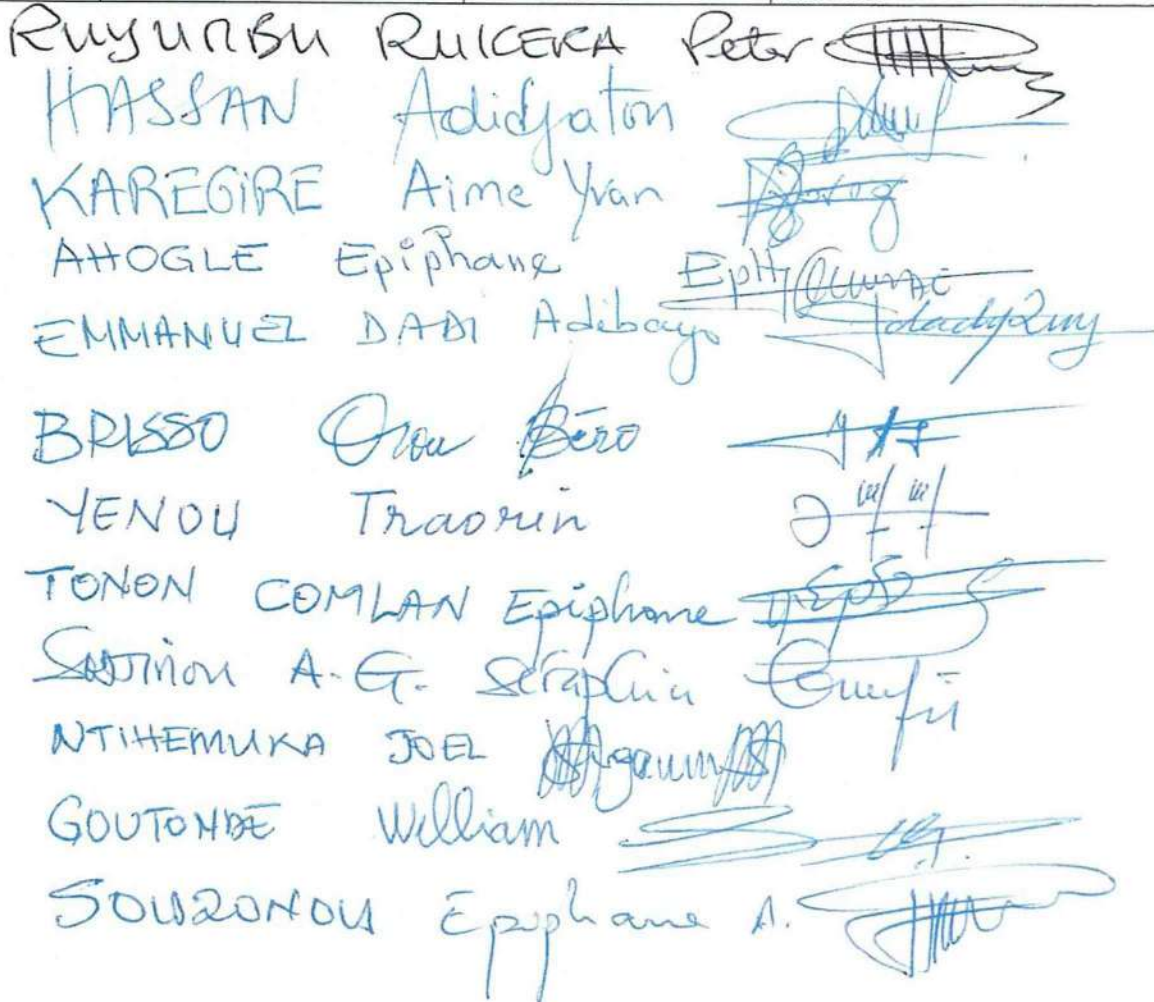 RUYURBU RUICEKA Peter
HASSAN Adidjaton
KAREGIRE Aime Yvan
AHOGLE Epiphane
EMMANUEL DADI Adébayo
BRISSO Orou Béro
YENOU Traorin
TONON COMLAN Epiphane
A. G. Séraphin
NTIHEMUKA JOEL
GOUTONDE William
SOUZONOU Epiphane A.